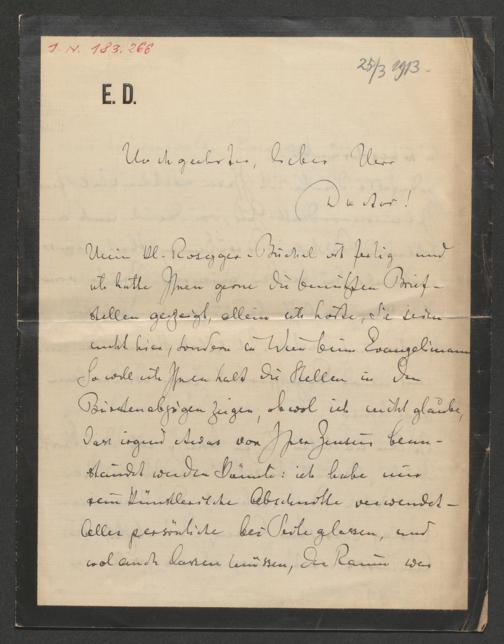 I. N. 183.266
25/3 1913.
E. D.
Hochgeehrter, lieber Herr
Doctor!
Mein kl. Rosegger-Büchel ist fertig und
ich hätte Ihnen gerne die benützten Brief-
stellen gezeigt, allein ich hörte, Sie seien
nicht hier, sondern in Wien beim Evangelimann
So wollte ich Ihnen halt die Stellen in den
Bürstenabzügen zeigen, obwol ich nicht glaube,
dass irgend etwas von Ihrer Zensur bean-
ständet werden könnte: ich habe nur
rein künstlerische Abschnitte verwendet –
alles persönliche bei Seite gelassen, und
wol auch lassen müssen, der Raum war